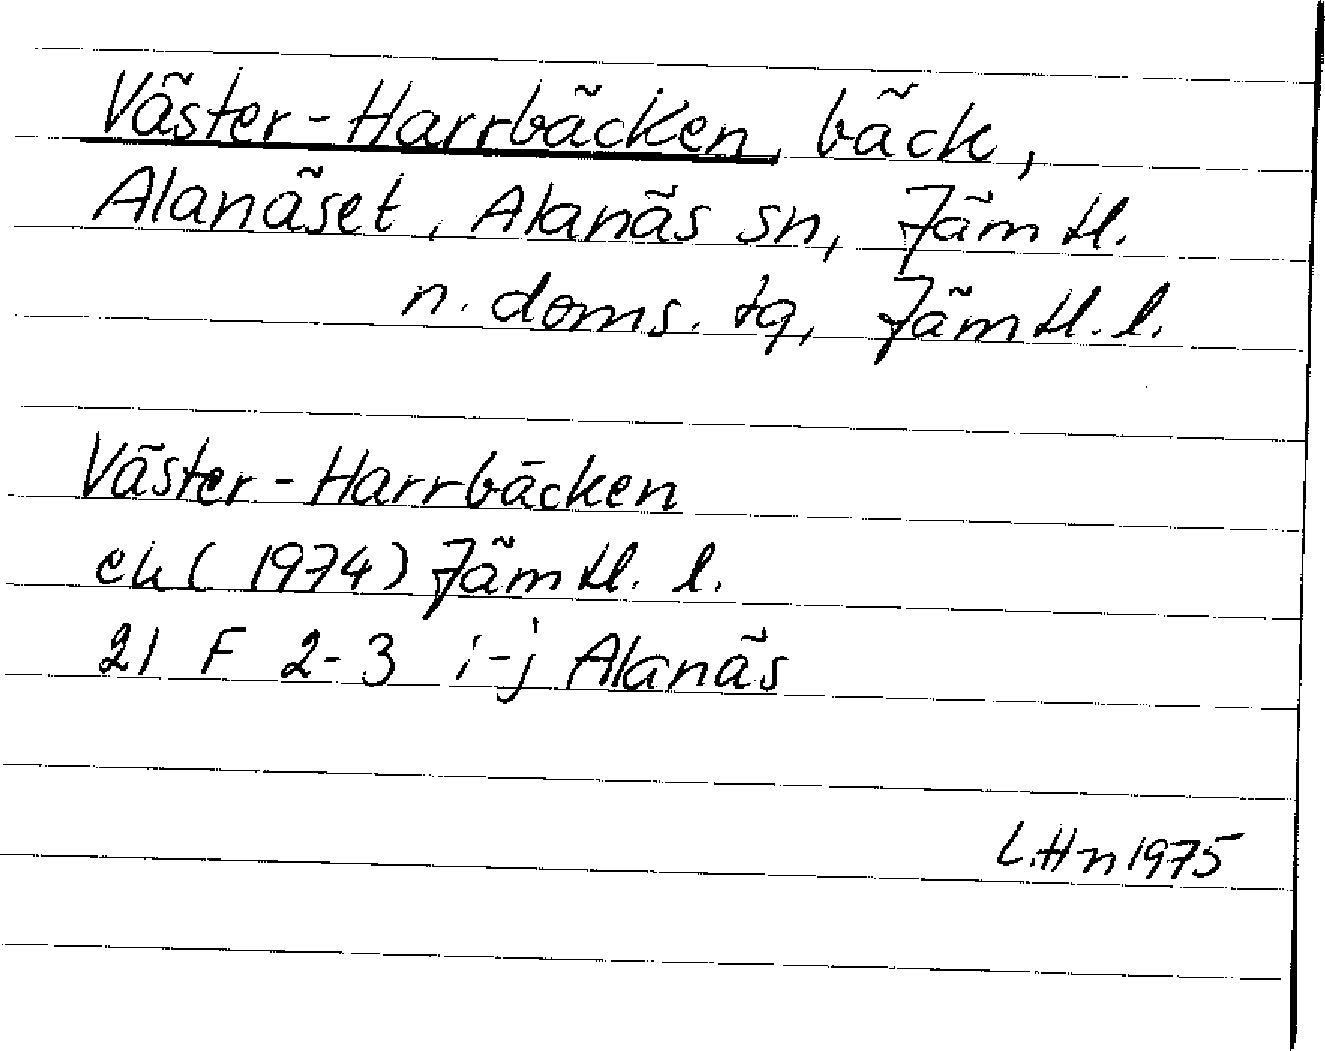 Väster-Harrbäcken, bäck,
Alanäset, Alanäs sn, Jämtl.
n. doms. tg, Jämtl. l.
Väster-Harrbäcken
ek (1974) Jämtl. l.
21 F 2-3 i-j Alanäs
L.Hn 1975